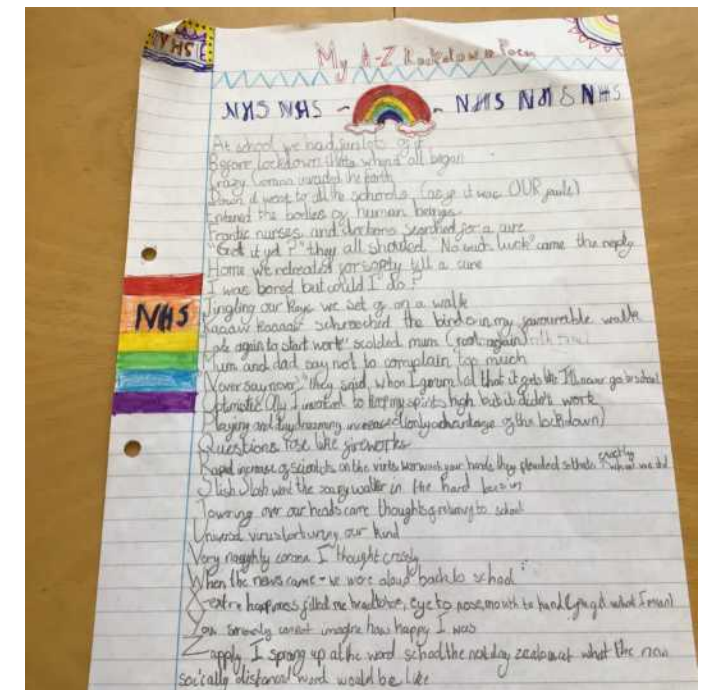 NHS
My A-Z Lockdown Poem
NHS NHS - - NHS NHS NHS
At school we had, lots of it
Before lockdown, thats when it all began
Crazy Corona invaded the earth
Down it went to all the schools (as if it was OUR fault)
Entered the bodies of human beings
Frantic nurses and doctors searched for a cure
"Got it yet?" they all shouted "No such luck" came the reply
Home we retreated for safty till a cure
I was bored but could I do?
NHS
Jingling our keys we set of on a walk
Kaaaw kaaaw schreeched the birds in my favourable walk
Late again to start work" scolded mum (again)
Mum and dad say not to complain too much
Never say never, "they said, when I that it gets like I'll never go to school
I to keep my spirits high but it didn't work
Playing and daydreaming increase (only advantage of the lockdown)
Questions rose like fireworks
Rapid increase of scientists on the virus wash your hands they pleaded so thats exactly what we did
Slish Slosh went the soapy water in the hand basin
Towering over our heads came thoughts of returning to school
Universal virus torturing our kind
Very naughty corona I thought crossly
When the news came - we were aloud back to school
X-extra happiness filled me head to toe, eye to nose, mouth to hand (you get what I mean)
You cannot imagine how happy I was
Zappily I sprang up at the word school the next day what the new
socially distanced word would be like